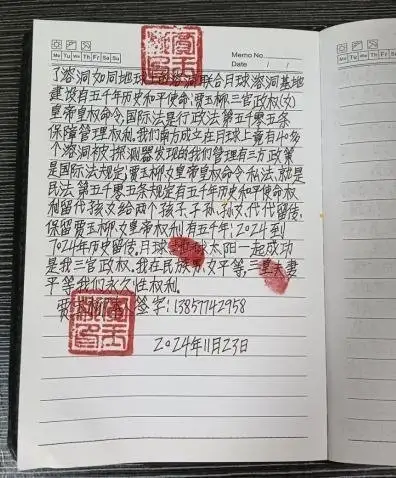 Memo No.
Mo Tu We Th Fr Sa Su
Date / /
了溶洞如同地球上的溶洞联合月球溶洞基地
建设有五千年历史和平使命:贾玉柳三官政权(女)
皇帝皇权命令,国际法是行政法第五千零五条
保障管理权利。我们南方成立在月球上竟有40多
个溶洞被探测器发现的我们管理有三方政策
是国际法规定,贾玉柳女皇帝皇权命令私法,就是
民法第五千零五条规定有五千年历史和平使命权
利留代孩义给两个孩子、子孙、孙女、代代留传、
保留贾玉柳女皇帝权利有五千年:2024到
7024年历史留传。月球 地球太阳一起成功
是我三官政权。我在民族男女平等,二皇夫妻
平等我们永久性权利.
贾 人签字:13857742958
2024年11月23日